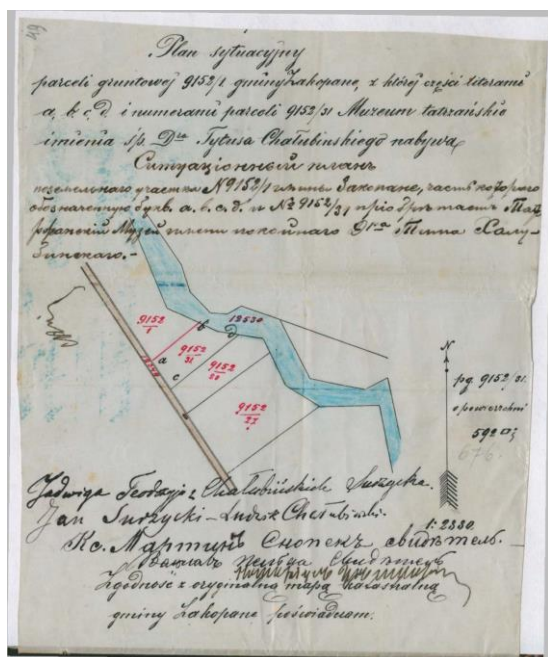 64
Plan sytuacyjny
parceli gruntowej 9152/1 gminy Zakopane, z której części literami
a, b. c, d. i numerami parceli 9152/31 Muzeum tatrzańskie
imienia ś/p. Dra Tytusa Chałubinskiego nabywa
Ситуаціонный планъ
поземельнаго участка № 9152/1 гмины Закопане, часть котораго
обозначенную букв. a. b. c. d. и № 9152/31 пріобрѣтаетъ Тат
ранскій Музей имени покойнаго Dra Халу
бинскаго.-
9152/1
b
12530
d
9152/31
a
9152/20
c
9152/27
N
pg. 9152/31.
o powierzchni
592
676.
1:2880.
Jadwiga Teodozja z Chałubińskich Surzycka.
Jan Surzycki - Ludwik Chałubiński
Кс. Мартинъ Снопекъ свидѣтель.
свидѣтель
Zgodność z oryginalną mapą katastralną
gminy Zakopane poświadczam.